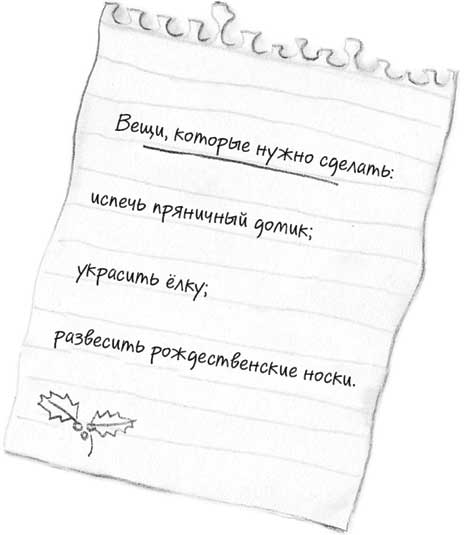 Вещи, которые нужно сделать:
испечь пряничный домик;
украсить ёлку;
развесить рождественские носки.